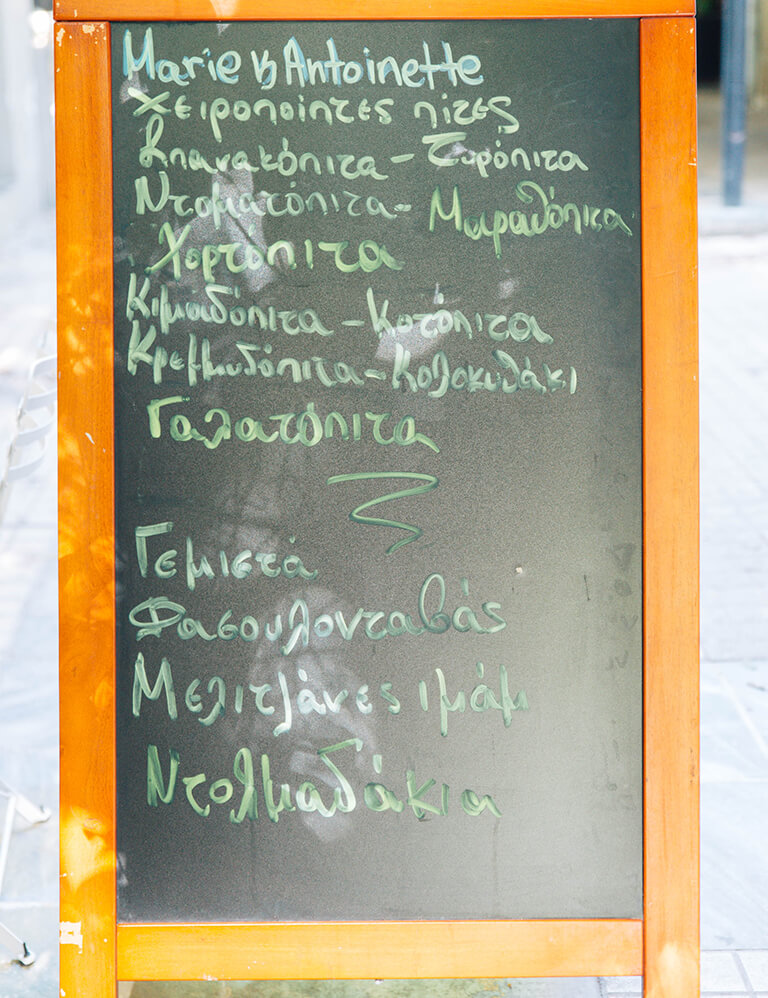 Marie & Antoinette
Χειροποίητες πίτες
Σπανακόπιτα - Τυρόπιτα
Ντοματόπιτα - Μαραθόπιτα
Χορτόπιτα
Κιμαδόπιτα - Κοτόπιτα
Κρεμμυδόπιτα - Κολοκυθάκι
Γαλατόπιτα
Γεμιστά
Φασουλονταβάς
Μελιτζάνες ιμάμ
Ντολμαδάκια